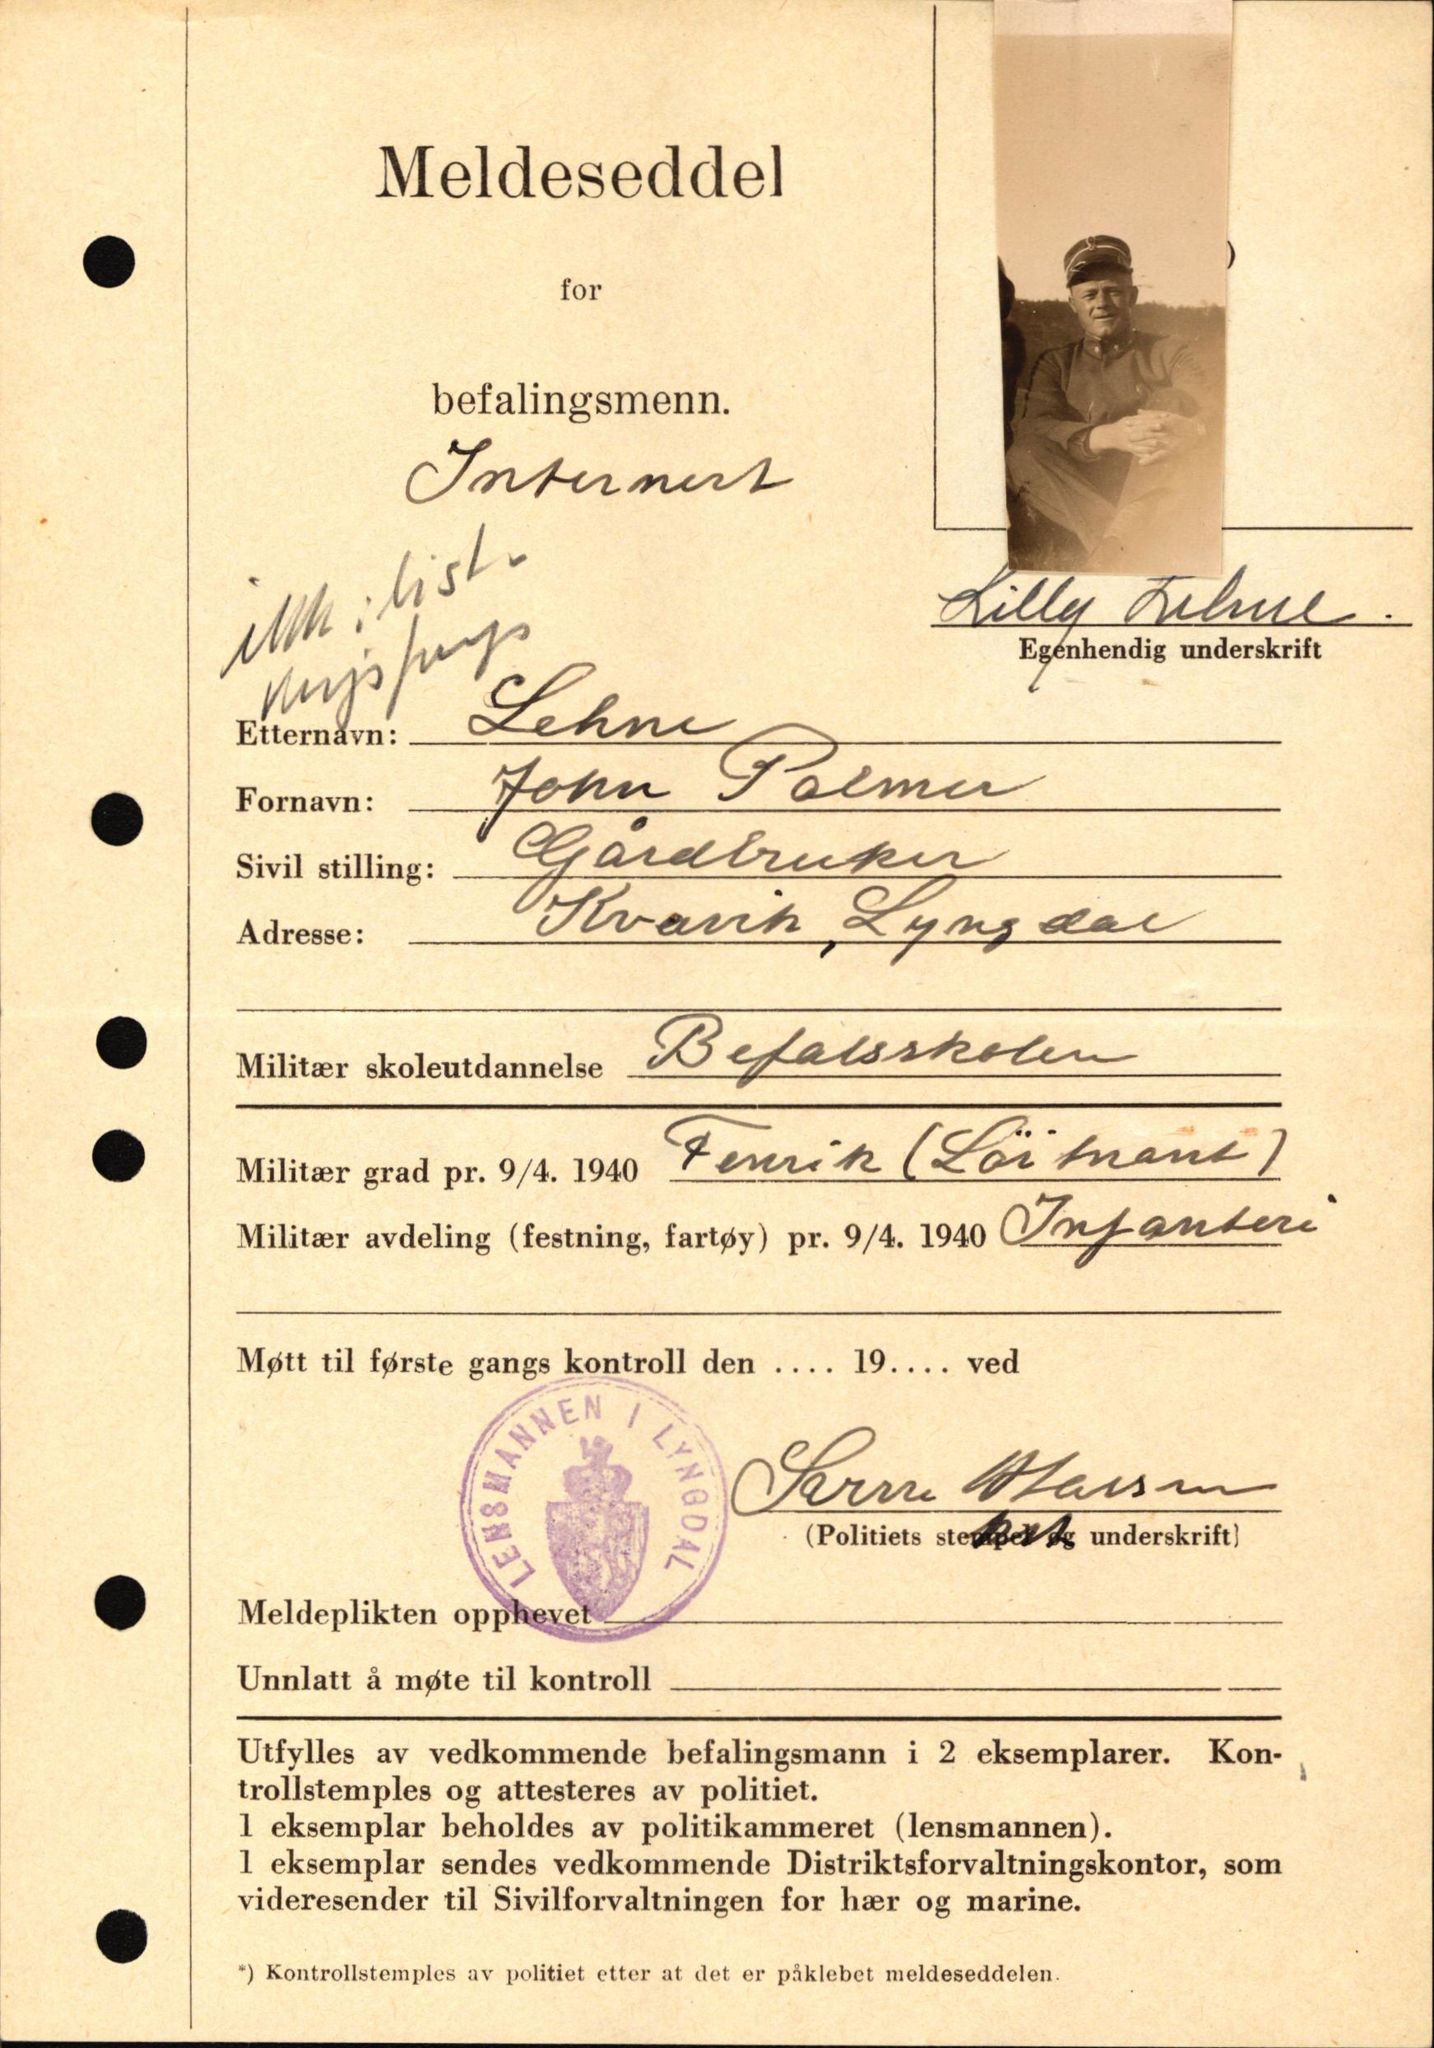 Meldeseddel
for
befalingsmenn.
Internert
ikk i list.
Lilly Lehne.
Egenhendig underskrift
Etternavn: Lehne
Fornavn: John Palmer
Sivil stilling: Gårdbruker
Adresse: Kvavik, Lyngdal
Militær skoleutdannelse Befalsskolen
Militær grad pr. 9/4. 1940 Fenrik (Löitnant)
Militær avdeling (festning, fartøy) pr. 9/4. 1940 Infanteri
Møtt til første gangs kontroll den .... 19.... ved
LENSMANNEN I LYNGDAL
(Politiets stempel og underskrift)
Meldeplikten opphevet
Unnlatt å møte til kontroll
Utfylles av vedkommende befalingsmann i 2 eksemplarer. Kon-
trollstemples og attesteres av politiet.
1 eksemplar beholdes av politikammeret (lensmannen).
1 eksemplar sendes vedkommende Distriktsforvaltningskontor, som
videresender til Sivilforvaltningen for hær og marine.
*) Kontrollstemples av politiet etter at det er påklebet meldeseddelen.